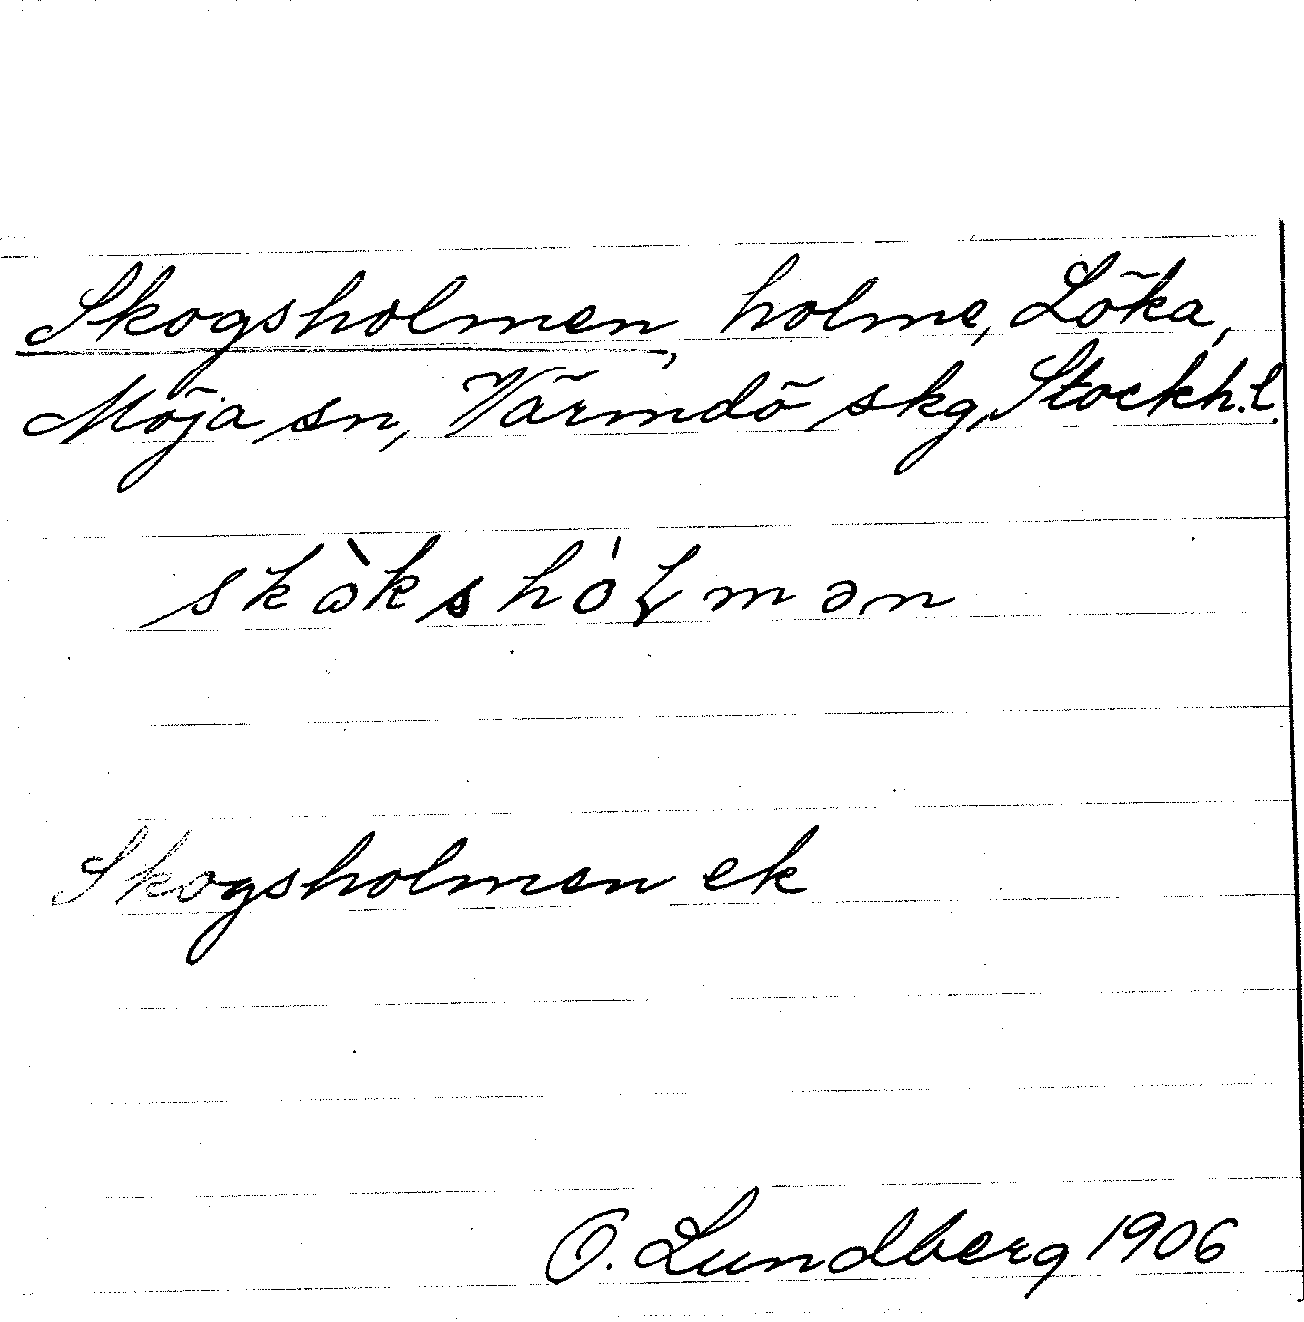 Skogsholmen, holme, Löka,
Möja sn, Värmdö skg, Stockh.l.
skòkshólmən
Skogsholmen ek
O. Lundberg 1906